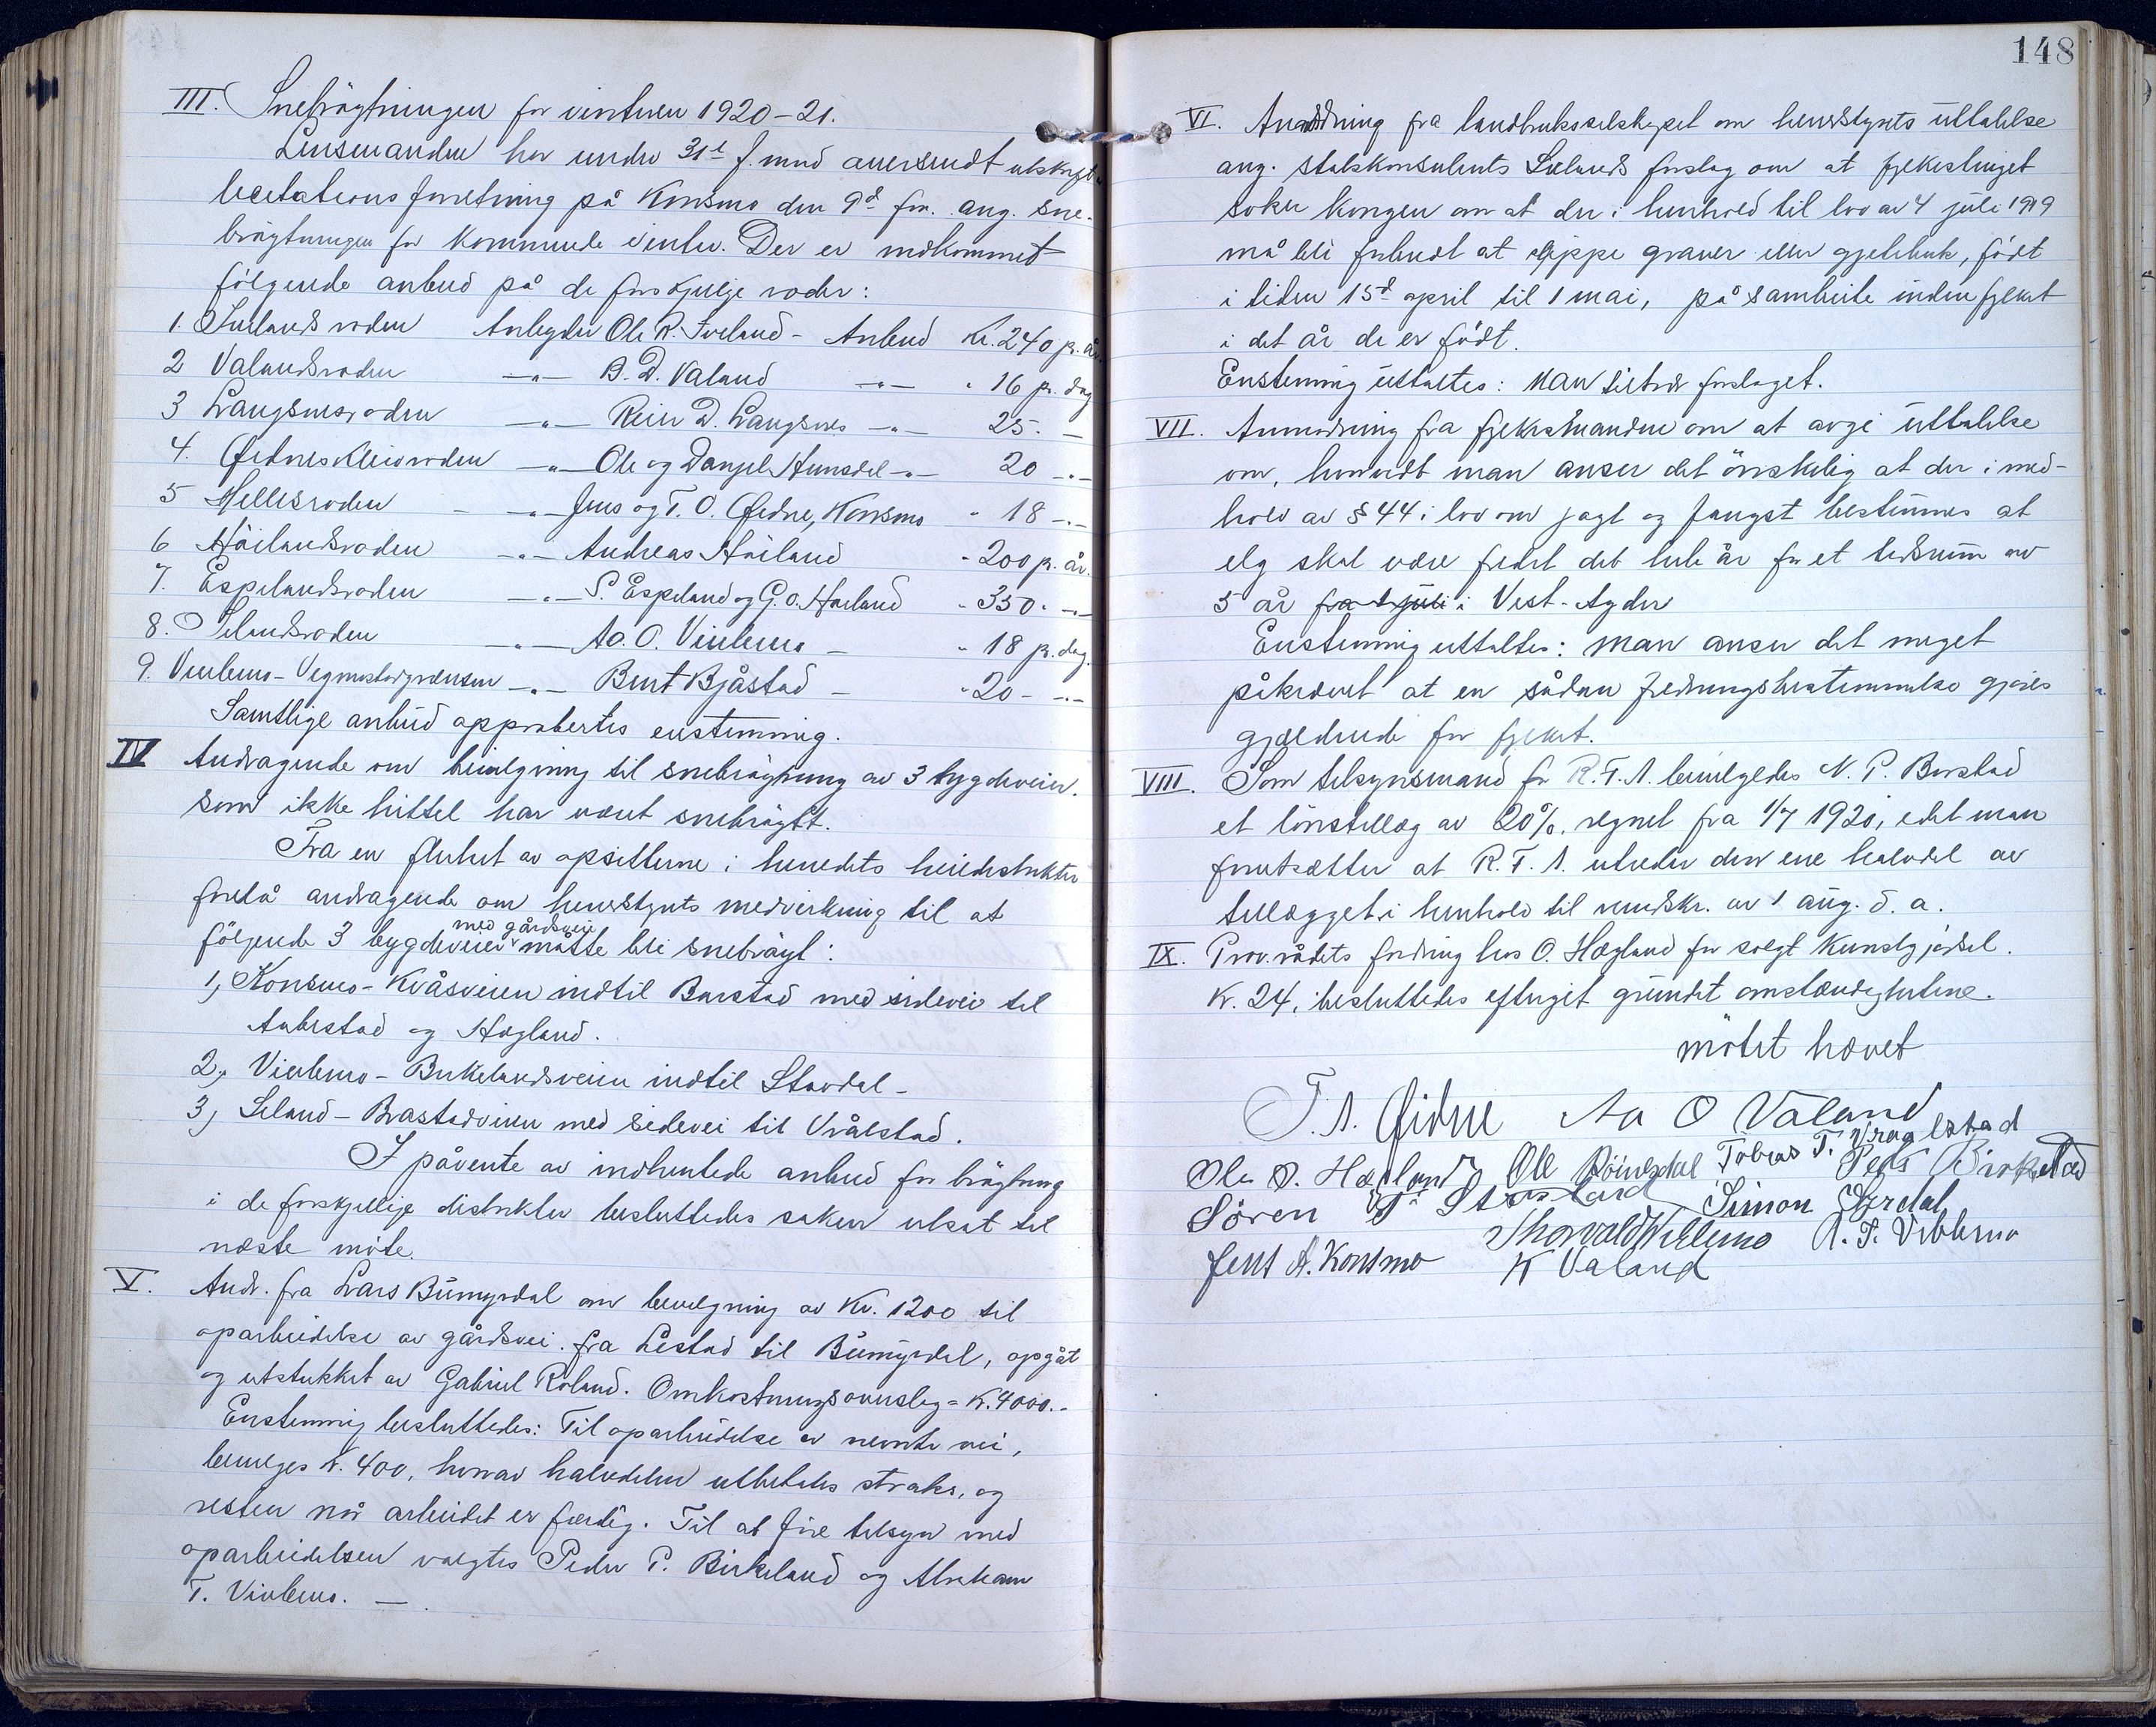 III. Snebrøgtningen for vinteren 1920-21.
Lensmanden har under 31t f. mnd oversendt utskrift av
licitationsforretning på Konsmo den 9d før. ang. sne-
brøgtningen for kommende vinter. Der er indkommet
følgende anbud på de forskjelige roder:
1. Ivelandsroden Anbyder Ole R. Iveland - Anbud Kr. 240 p. år.
2 Valandsroden -"- B. D. Valand -"- " 16 p. dag
3 Langsnesroden -"- Reier D. Langsnes -"- 25. -
4. Øidneskleivroden -"- Ole og Danjel Hunsdal -"- 20 -"-
5 Hellesroden -"- Jens og T. O. Øidne, Konsmo " 18 -"-
6 Høilandsroden -"- Andreas Høiland " 200 p. år.
7. Espelandsroden -"- S. Espeland og G. O. Høiland " 350. -"-
8. Selandsroden -"- Aa. O. Viblemo - " 18 p. dag.
9. Viblemo-Vegmostadgrænsen -"- Bent Bjåstad - " 20 - -"-
Samtlige anbud approbertes enstemmig.
IV Andragende om bevilgning til snebrøgtning av 3 bygdeveier.
som ikke hittil har været snebrøgtt.
Fra en flerhet av opsitterne i herredets heiedistrikter
forelå andragende om herredstyrets medvirkning til at
med gårdsveie
følgende 3 bygdeveier måtte bli snebrøigt:
1, Konsmo-Kvåsveien indtil Barstad med sidevei til
Aabestad og Hægland.
2, Viblemo-Birkelandsveien indtil Stavdal -
3, Seland-Brastadveien med sidevei til Vrålstad.
I påvente av indhentede anbud for brøgtning
i de forskjellige distrikter besluttedes saken utsat til
næste møte.
V. Andr. fra Lars Bumyrdal om bevilgning av Kr. 1200 til
oparbeidelse av gårdsvei. fra Lestad til Bumyrdal, opgåt
og utstukket av Gabriel Roland. Omkostningsoverslag = K. 4000.-
Enstemmig besluttedes: Til oparbeidelse av nevnte vei,
bevilges K. 400, hvorav halvdelen utbetales straks, og
resten når arbeidet er færdig. Til at føre tilsyn med
oparbeidelsen valgtes Peder P. Birkeland og Abraham
T. Viblemo. -
148
VI. Anmodning fra landbruksselskapet om herredstyrets uttalelse
ang. statskonsulents Sælands forslag om at fylkestinget
søker Kongen om at der i henhold til lov av 4 juli 1919
må bli forbudt at slippe graver eller gjetebuk, født
i tiden 15d april til 1 mai, på sambeite inden fylket
i det år de er født.
Enstemmig uttaltes: Man tiltrær forslaget.
VII. Anmodning fra fylkesmanden om at avgi uttalelse
om, hvorvidt man anser det ønskelig at der i med-
hold av § 44 i lov om jagt og fangst bestemmes at
elg skal være fredet det hele år for et tidsrum av
5 år fra 1 juli i Vest-Agder
Enstemmig uttaltes: Man anser det meget
påkrævet at en sådan fredningsbestemmelse gjøres
gjældende for fylket.
VIII. Som tilsynsmand for R.T.A. bevilgedes N. P. Barstad
et lønstillæg av 20%. regnet fra 1/7 1920, idet man
forutsætter at R.T.A. utreder den ene halvdel av
tillægget i henhold til rundskr. av 1 aug. d. a.
IX. Prov.rådets fordring hos O. Hægland for solgt kunstgjødsel.
K. 24, besluttedes eftergit grundet omstændighetene.
møtet hævet
T. A. Øidne Aa O Valand
Ole O. Hægland Ole Röinesdal Tobias T. Vraalstad
Sören Simon Peder Birkeland
Jens A. Konsmo Thorvald Viblemo A. T. Viblemo
K Valand